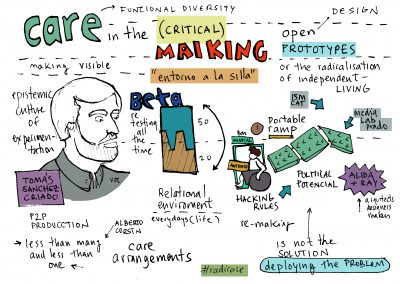 FUNCTIONAL DIVERSITY
DESIGN
care in the (CRITICAL) MAIKING
open PROTOTYPES
making visible
or the radicalisation
of independent-
LIVING
"entorno a la silla"
epistemic
culture
of
experimen-
tation
Beta
re
testing
all
the
time
50
20
ISM
CAT
media
Lab
Prado
Portable
ramp
ANTONIO
HACKING
RULES
POLITICAL
POTENCIAL
ALIDA
+ RAY
TOMÁS
SANCHEZ
CRIADO
P2P
PRODUCCTION
→ less than many
and less than
one
ALBERTO
Relational
enviroment
everydays (life)
care
arrangements
re-making
IS NOT the
SOLUTION
deploying the PROBLEM
#radicare